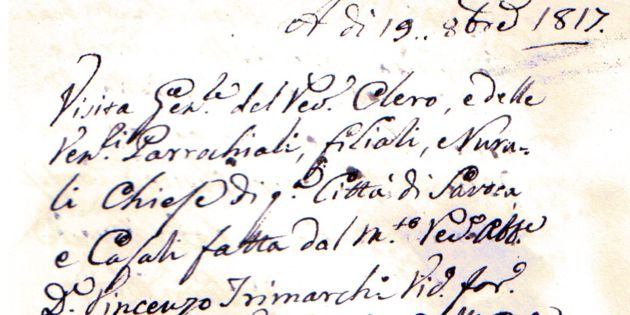 A di 19.. 8bre 1817.
Visita Gen.le del Ven. Clero, e delle
Ven.li Parrochiali, filiali, e Rura-
li Chiese di q.a Città di Savoca
e Casali fatta dal m.to Rev. Abb.e
D. Vincenzo Trimarchi Vic. for.